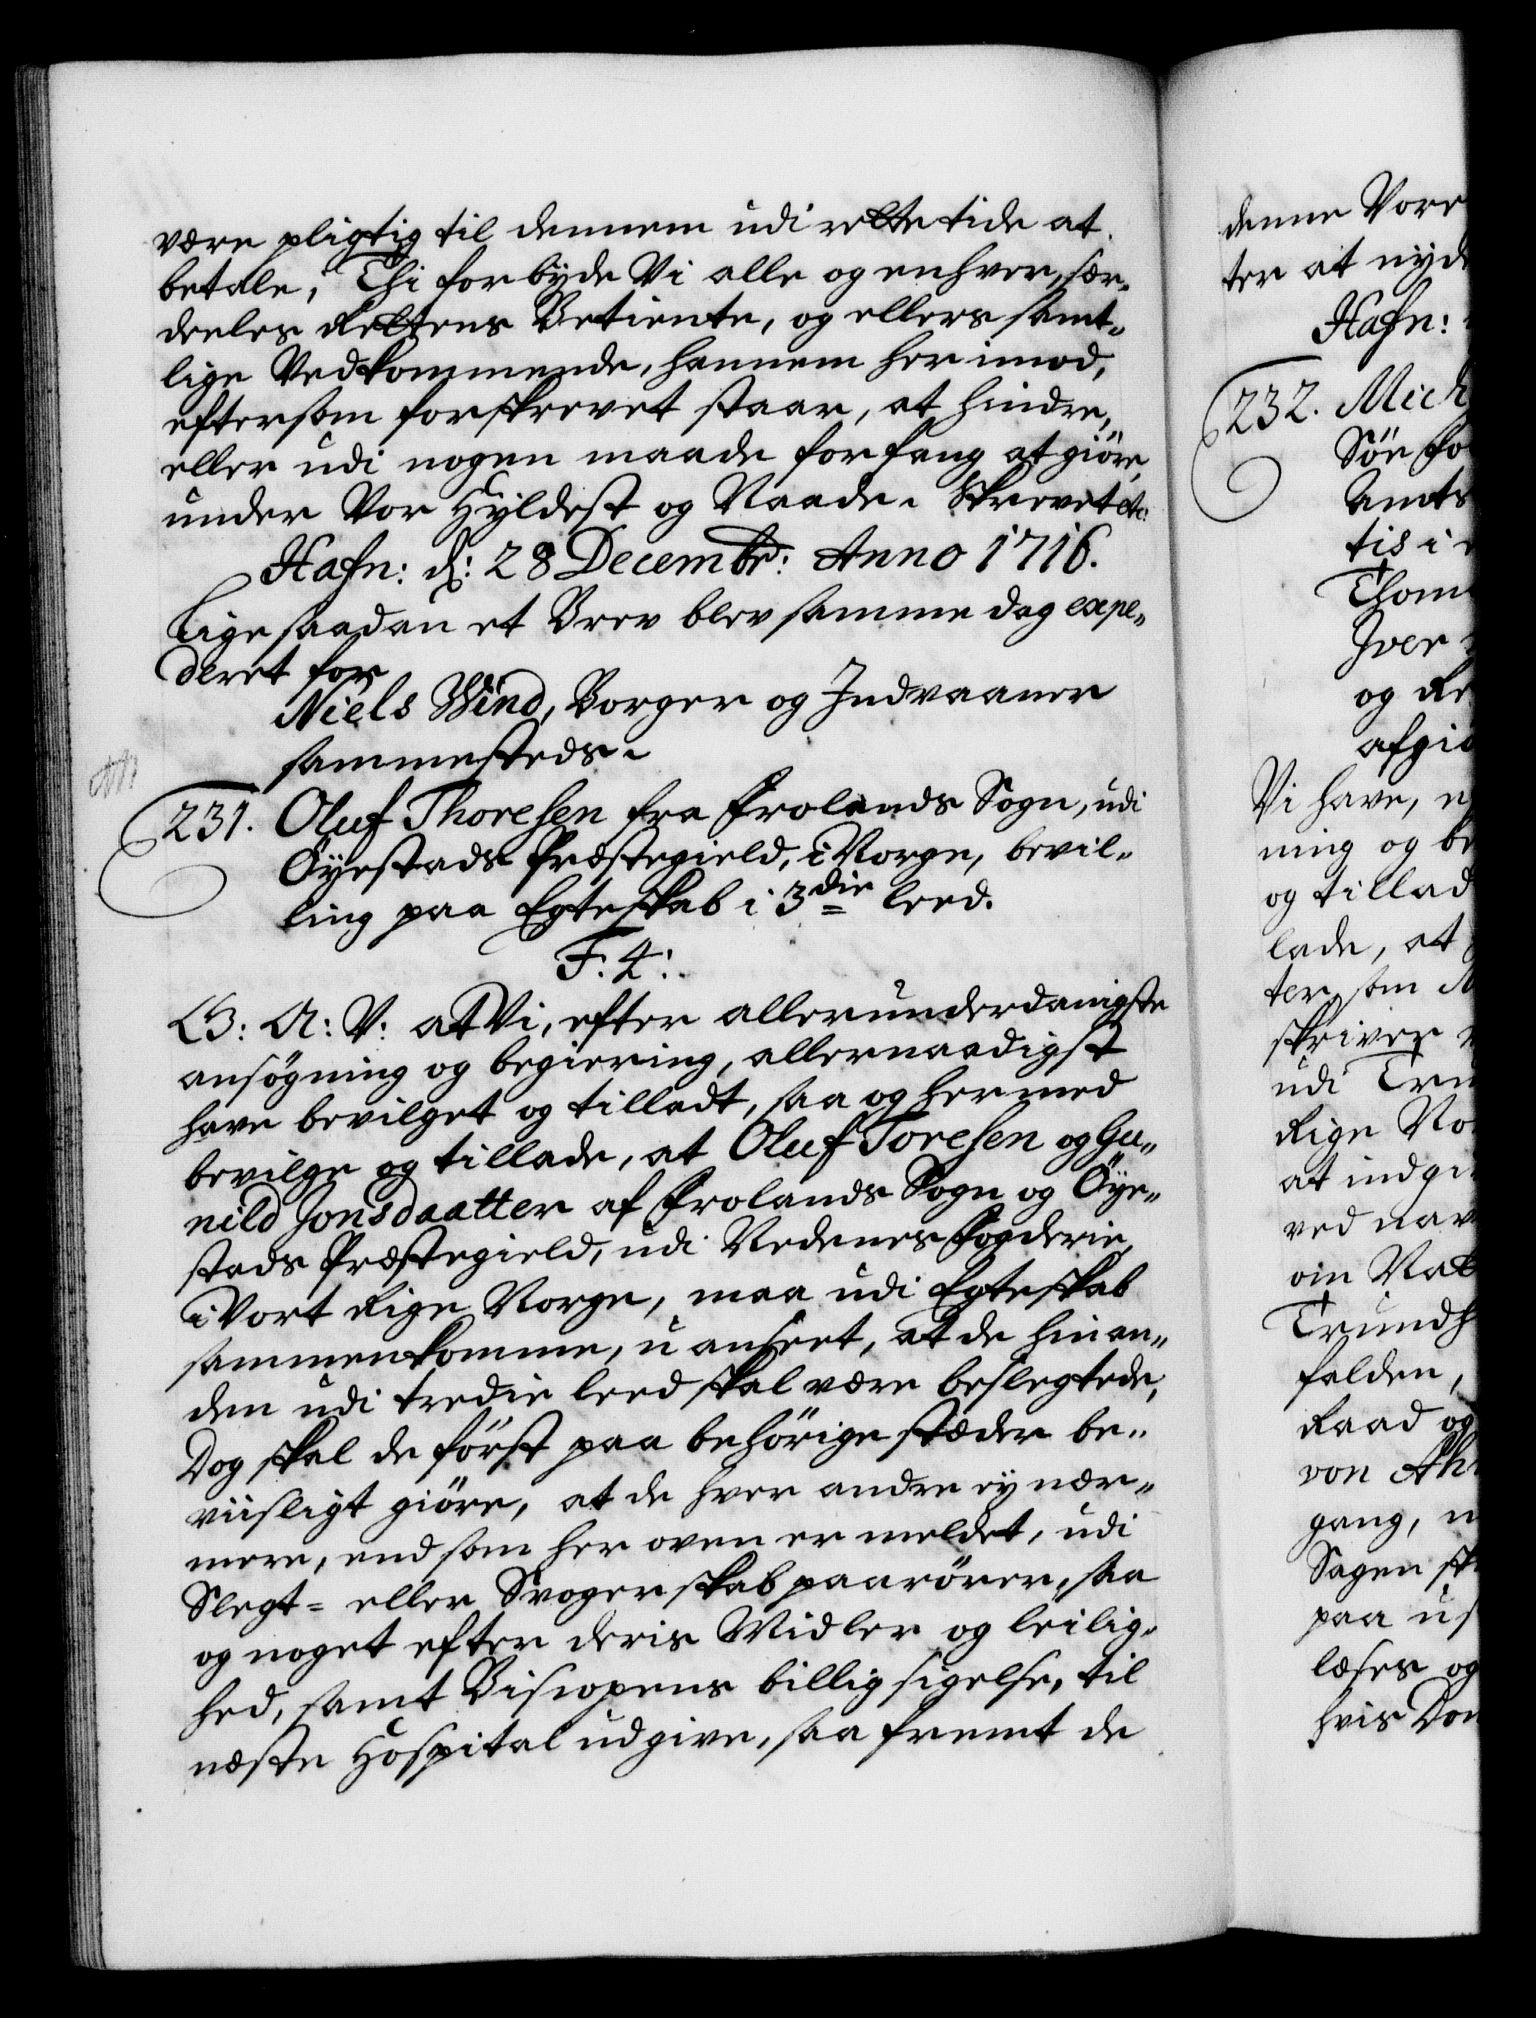 være pligtig til dennem udi rette tide at
betale, Thi forbyde Vi alle og enhver, sær„
deeles Rettens Betiente, og ellers samt„
lige Vedkommende, hannem her imod,
eftersom forskrevet staar, at hindre,
eller udi nogen maade forfang at giöre,
under Vor Hyldest og Naade. Skrevet etc:
Hafn: d: 28 Decembr: Anno 1716.
Lige saadan et Brev blev samme dag expe„
deret for
Niels Wind, Borger og Indvaaner
sammesteds.
231. Oluf Thoresen fra Frolands Sogn, udi
Öyestads Præstegield, i Norge, bevil„
ling paa Egteskab i 3die leed.
F. 4:
G: A: V: at Vi, efter allerunderdanigste
ansögning og begiering, allernaadigst
have bevilget og tilladt, saa og hermed
bevilge og tillade, at Oluf Toresen og Gu„
nild Jonsdaatter af Frolands Sogn og Öye„
stads Præstegield, udi Nedenes Fogderie,
i Vort Rige Norge, maa udi Egteskab
sammenkomme, uanseet, at de hinan„
den udi tredie leed skal være beslegtede,
Dog skal de först paa behörige stæder be„
viisligt giöre, at de hver andre ey nær„
mere, end som her oven er meldet, udi
Slegt= eller Svogerskab paarörer, saa
og noget efter deris Midler og leilig„
hed, samt Biscopens billigsigelse, til
næste Hospital udgive, saa fremt de
denne Vore
ter at nyde
Hafn:
232. Mich
Sön fo
Amts
tis i
Thom
Iver
og Re
afgio
Vi have,
ning og be
og tillad
lade, at
ter som
skriver
udi Tru
Rige No
at indgi
ved nav
Trundh
falden,
Raad og
von Ah
gang,
Sagen sk
paa
læses og
hvis Dom